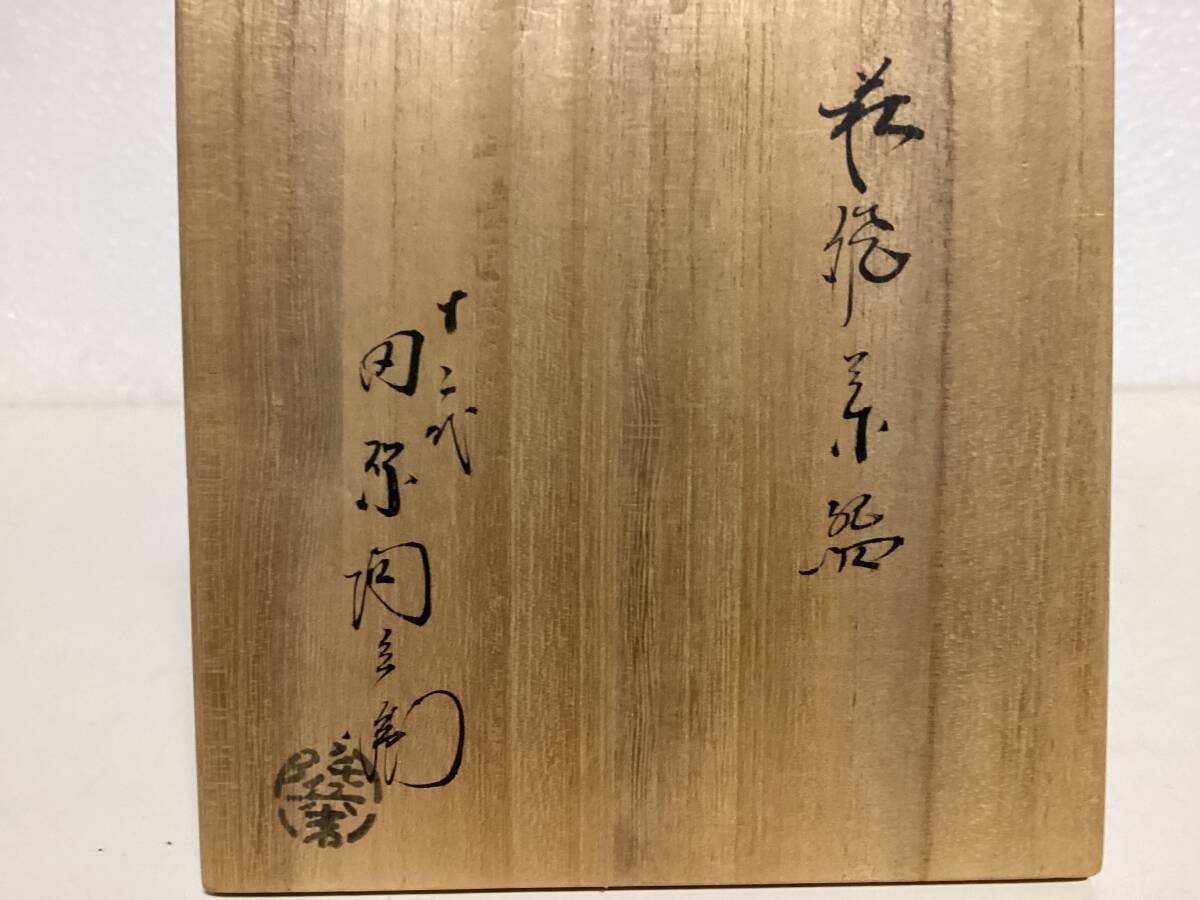 萩焼茶盌
十二代
田原陶兵衛